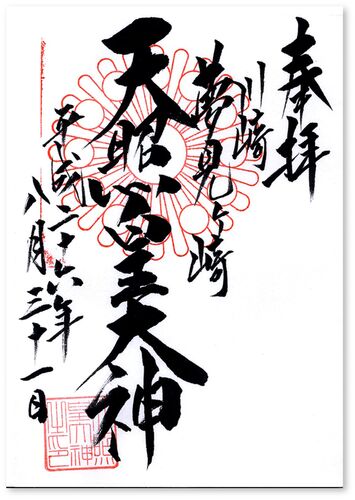 奉拝
川崎
夢見ヶ崎
天照皇大神
平成二十六年
八月三十一日